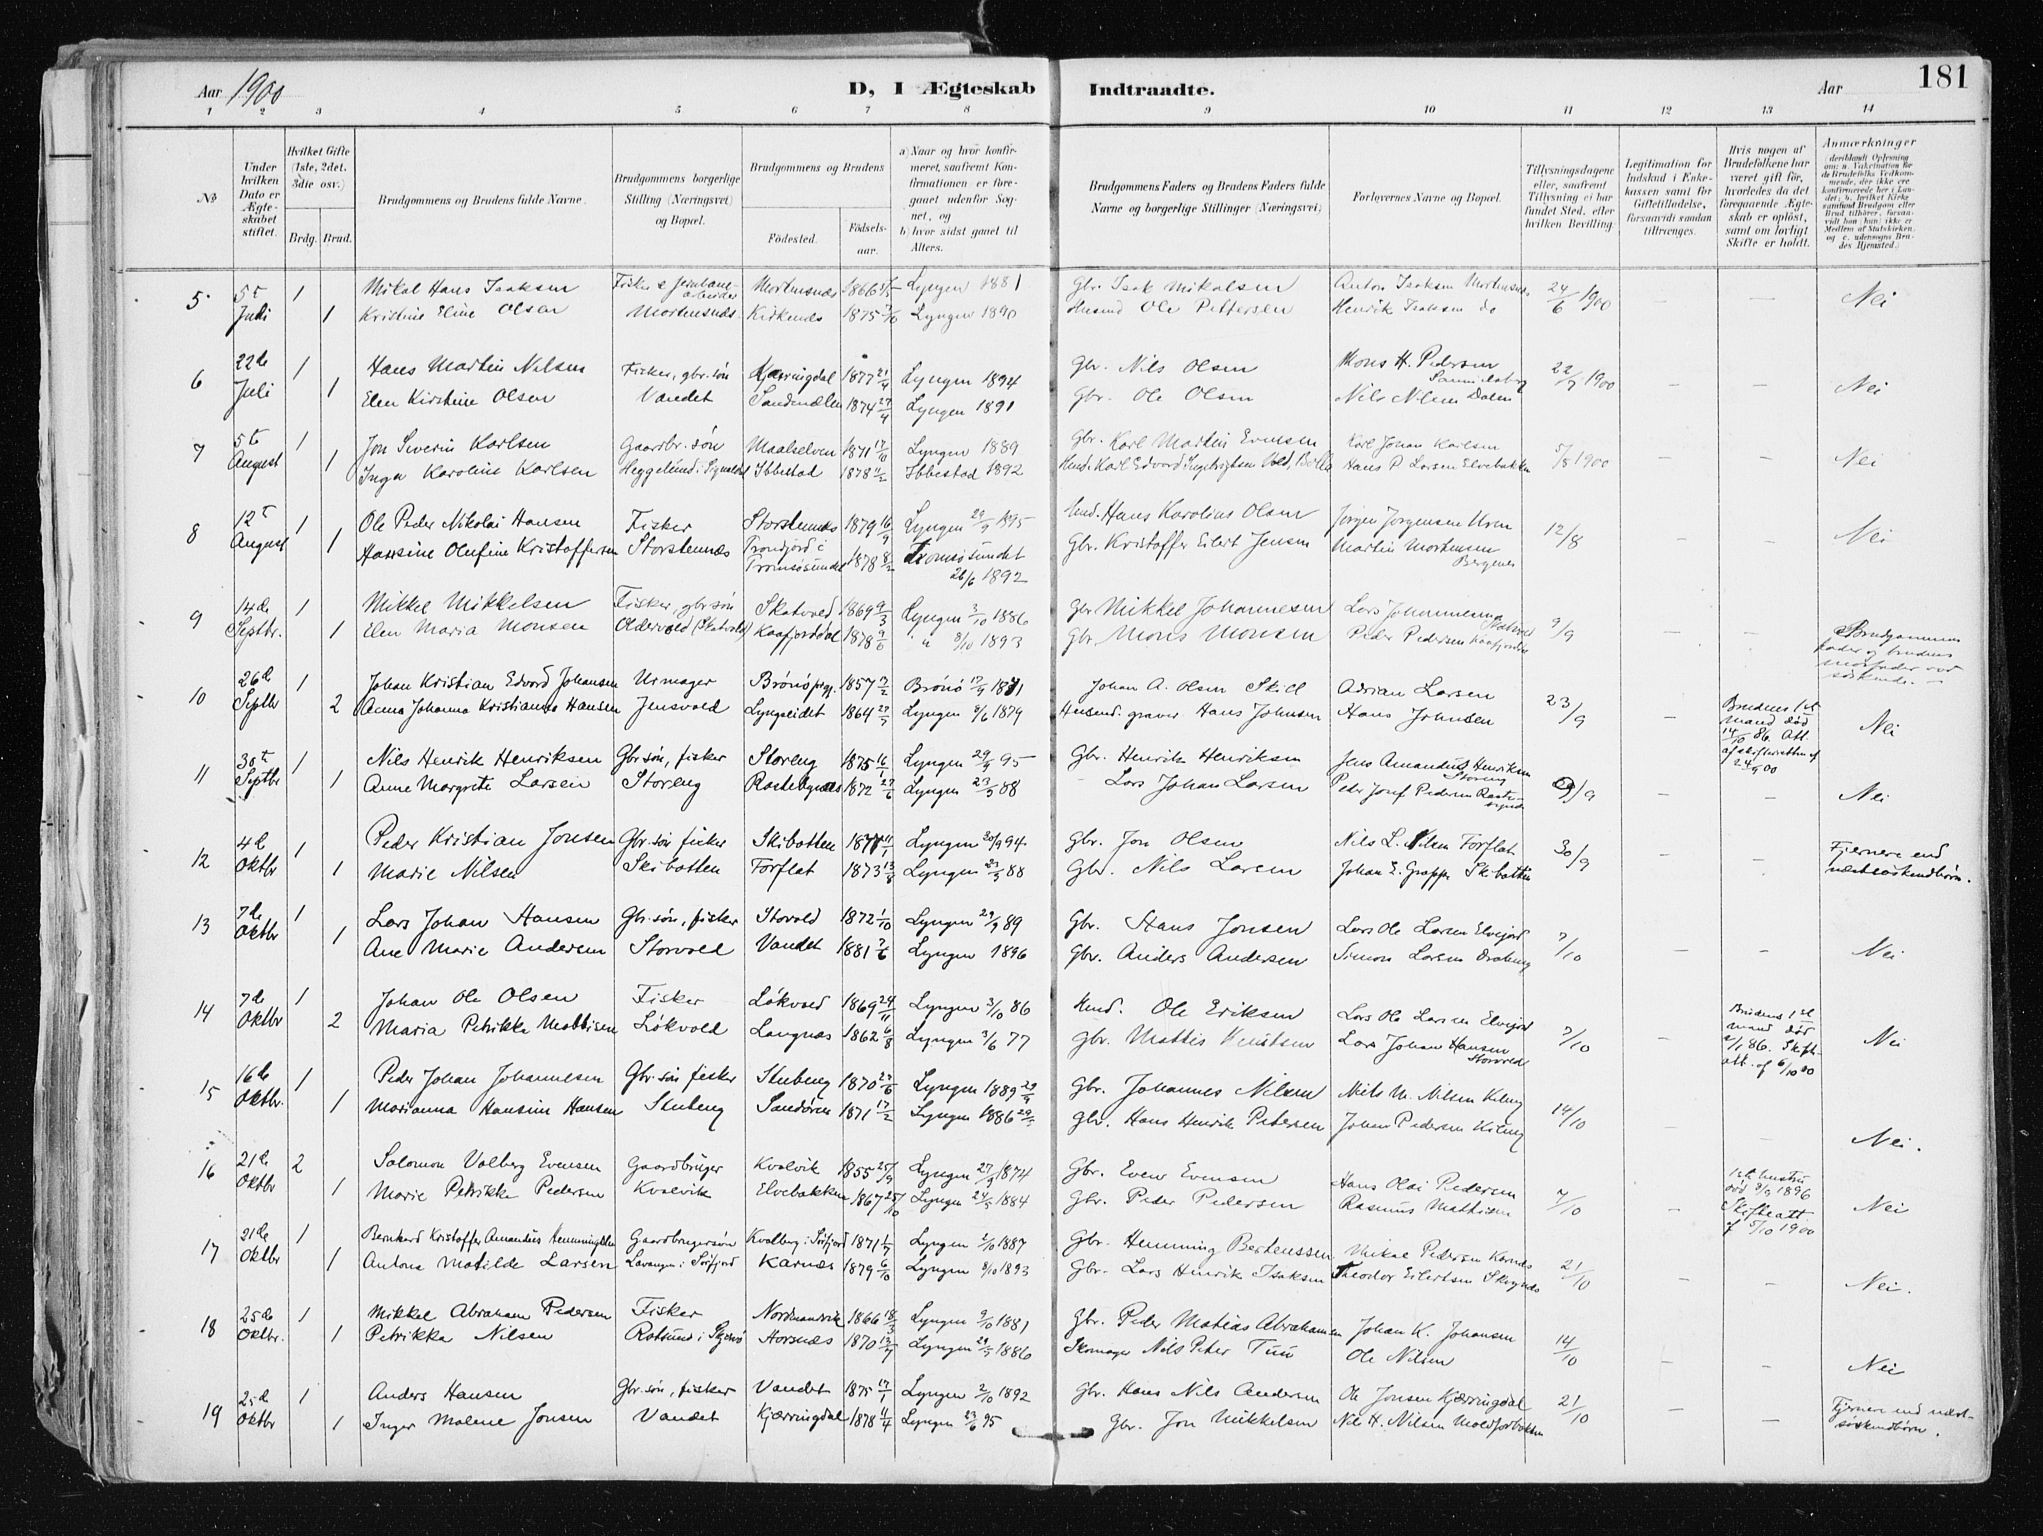 Aar 1900
D, I Ægteskab Indtraadte.
Aar 181
1 2 3 4 5 6 7 8 9 10 11 12 13 14
No
Under hvilken Dato er Ægteskabet stiftet.
Hvilket Gifte (1ste, 2det, 3die osv.)
Brdg. Brud.
Brudgommens og Brudens fulde Navne.
Brudgommens borgerlige Stilling (Næringsvei) og Bopæl.
Brudgommens og Brudens
Fødested. Fødselsaar.
a) Naar og hvor konfirmeret, saafremt Konfirmationen er foregaaet udenfor Sognet, og
b) hvor sidst gaaet til Alters.
Brudgommens Faders og Brudens Faders fulde Navne og borgerlige Stillinger (Næringsvei)
Forlovernes Navne og Bopæl.
Tillysningsdagene eller, saafremt Tillysning ei har fundet Sted, efter hvilken Bevilling.
Legitimation for Indskud i Enkekassen samt for Giftetilladelse, forsaavidt saadan tiltrænges.
Hvis nogen af Brudefolkene har været gift før, hvorledes da det foregaaende Ægteskab er opløst, samt om lovligt Skifte er holdt.
Anmærkninger
5 5te Juli 1 Mikal Hans Isaksen Mortensnæs 1866 Lyngen 1881 Gbr. Isak Mikalsen Anton Isaksen Mortensnæs 24/6 1900 – – Nei
1 Kristine Eline Olsen Mortensnæs Kirkenæs 1875 Lyngen 1890 Husmd Ole Pettersen Henrik Isaksen do
6 22de Juli 1 Hans Martin Nilsen Fisker, gbr. søn Kjærringdal 1877 21/4 Lyngen 1894 Gbr. Nils Olsen Mons H. Pedersen 22/7 1900 – – Nei
1 Elen Kirstine Olsen Vandet 1874 27/4 Lyngen 1891 Gbr. Ole Olsen Nils Nilsen Dalen
7 5te August 1 Jon Severin Karlsen Gaardbr. søn Maalselven 1871 17/10 Lyngen 1889 Gbr. Karl Martin Evensen Karl Johan Karlsen 5/8 1900 – – Nei
1 Inga Karoline Karlsen Ibbestad 1878 11/2 Ibbestad 1892 Hans P. Larsen Elvebakken
8 12te August 1 Ole Peder Nikolai Hansen Fisker Storstennæs 1879 16/9 Lyngen 29/9 1895 Hans Karolius Olsen Jørgen Jørgensen 12/8 – – Nei
1 Hansine Olufine Kristoffersen Storstennæs Tromsøsundet 1878 8/2 Tromsøsundet 26/6 1892 Gbr. Kristoffer Eilert Jensen Martin Mortensen Bergenes
9 14de Septbr. 1 Mikkel Mikkelsen Fisker, gbr søn Skatvold 1869 9/3 Lyngen 3/10 1886 Gbr Mikkel Johannesen Lars Johannesen 9/9 – –
1 Elen Maria Monsen Oldervold (Skatvold) Kaafjorddal 1878 7/6 " 8/10 1893 Gbr. Mons Monsen Peder Pedersen Kaafjorddal
Brudgommens fader og brudens morfader var søskende. –
10 26de Septbr 1 Johan Kristian Edvard Johansen Urmager Brønø prgj. 1857 17/2 Brønø 1871 Johan A. Olsen Skill Adrian Larsen 23/9 – Brudens 1ste mand død 14/10 86. Att. af skifteretten af 24/9 00 Nei
2 Anna Johanna Kristianna Hansen Jensvold Lyngseidet 1864 27/7 Lyngen 8/6 1879 Hans Johnsen Hans Johnsen
11 30te Septbr 1 Nils Henrik Henriksen Gbr søn, fisker Storeng 1875 16/1 Lyngen 29/9 95 Gbr. Henrik Henriksen Jens Amandus Henriksen Storeng 9/9 – – Nei
1 Anne Margrete Larsen Storeng 1872 27/6 Lyngen 23/9 88 – Lars Johan Larsen Peder Josef Pedersen
12 4de Oktbr 1 Peder Kristian Jonsen Gbr. søn fisker Skibotten Lyngen 30/9 94 Gbr. Jon Olsen Nils L. Nilsen Forflat 30/9 – – Fjernere end næstsøskendbørn.
1 Marie Nilsen Skibotten Forflat 1873 13/8 Lyngen 23/9 88 Gbr. Nils Larsen Johan E. Grape Skibotten
13 7de Oktbr 1 Lars Johan Hansen Gbr. søn, fisker Storvold 1872 1/10 Lyngen 29/9 89 Gbr. Hans Jonsen Lars Ole Larsen Elvejord 7/10 – – Nei
1 Ane Marie Andersen Storvold Vandet 1881 7/6 Lyngen 1896 Gbr. Anders Andersen Simon Larsen
14 7de Oktbr 1 Johan Ole Olsen Fisker Løkvold 1869 24/11 Lyngen 3/10 86 Husmd. Ole Eriksen Lars Ole Larsen Elvejord 7/10 – Brudens 1ste mand død 2/1 86. Skifteatt. af 6/10 00 Nei
2 Maria Petrikke Mathisen Løkvold Langnæs 1862 6/8 Lyngen 3/6 77 Gbr. Mattis Knutsen Lars Johan Hansen Storvold
15 16de Oktbr. 1 Peder Johan Johannesen Gbr. søn fisker Stubeng 1870 27/6 Lyngen 1889 29/9 Gbr. Johannes Nilsen Niels M. Nilsen 14/10 – – Nei.
1 Marianna Hansine Hansen Stubeng Sandøren 1871 17/2 Lyngen 1886 Gbr. Hans Henrik Petersen Johan Pedersen
16 21de Oktbr 2 Salomon Valberg Evensen Gaardbruger Kvalvik 1855 25/9 Lyngen 27/9 1874 Gbr. Even Evensen Hans Olai Pedersen 7/10 – 1ste hustru død 8/9 1896 Skifteatt f 5/10 1900 Nei
1 Marie Petrikke Pedersen Kvalvik Elvebakken 1867 25/10 Lyngen 1884 Gbr. Peder Pedersen Rasmus Mathisen
17 21de Oktbr 1 Bernhard Kristoffer Amandus Hemmingsen Gaardbrugersøn Kvalberg i Sørfjord 1871 1/7 Lyngen 2/10 1887 Gbr. Hemming Berteussen Mikal Pedersen Karnæs 21/10 – – Nei.
1 Antona Matilde Larsen Lavangen i Sørfjord Karnæs 1879 6/10 Lyngen 8/10 1893 Gbr. Lars Henrik Isaksen Theodor Eilertsen
18 25de Oktbr. 1 Mikkel Abraham Pedersen Fisker Nordmandvik 1866 18/3 Lyngen 9/10 1881 Gbr. Peder Matias Abrahamsen Johan K. Johansen 14/10 – – Nei
1 Petrikka Nilsen Rotsund i Skjervø Horsnæs 1870 13/7 Lyngen 1886 Skomager Nils Peter Tuu Ole Nilsen
19 25de Oktbr 1 Anders Hansen Gbr. søn, fisker Vandet 1875 17/1 Lyngen 2/10 1892 Gbr. Hans Nils Andersen Ole Jonsen Kjærringdal 21/10 – – Fjernere end næstsøskendbørn.
1 Inger Malene Jonsen Vandet Kjærringdal 1878 11/4 Lyngen 95 Gbr. Jon Mikkelsen Nils H. Nilsen